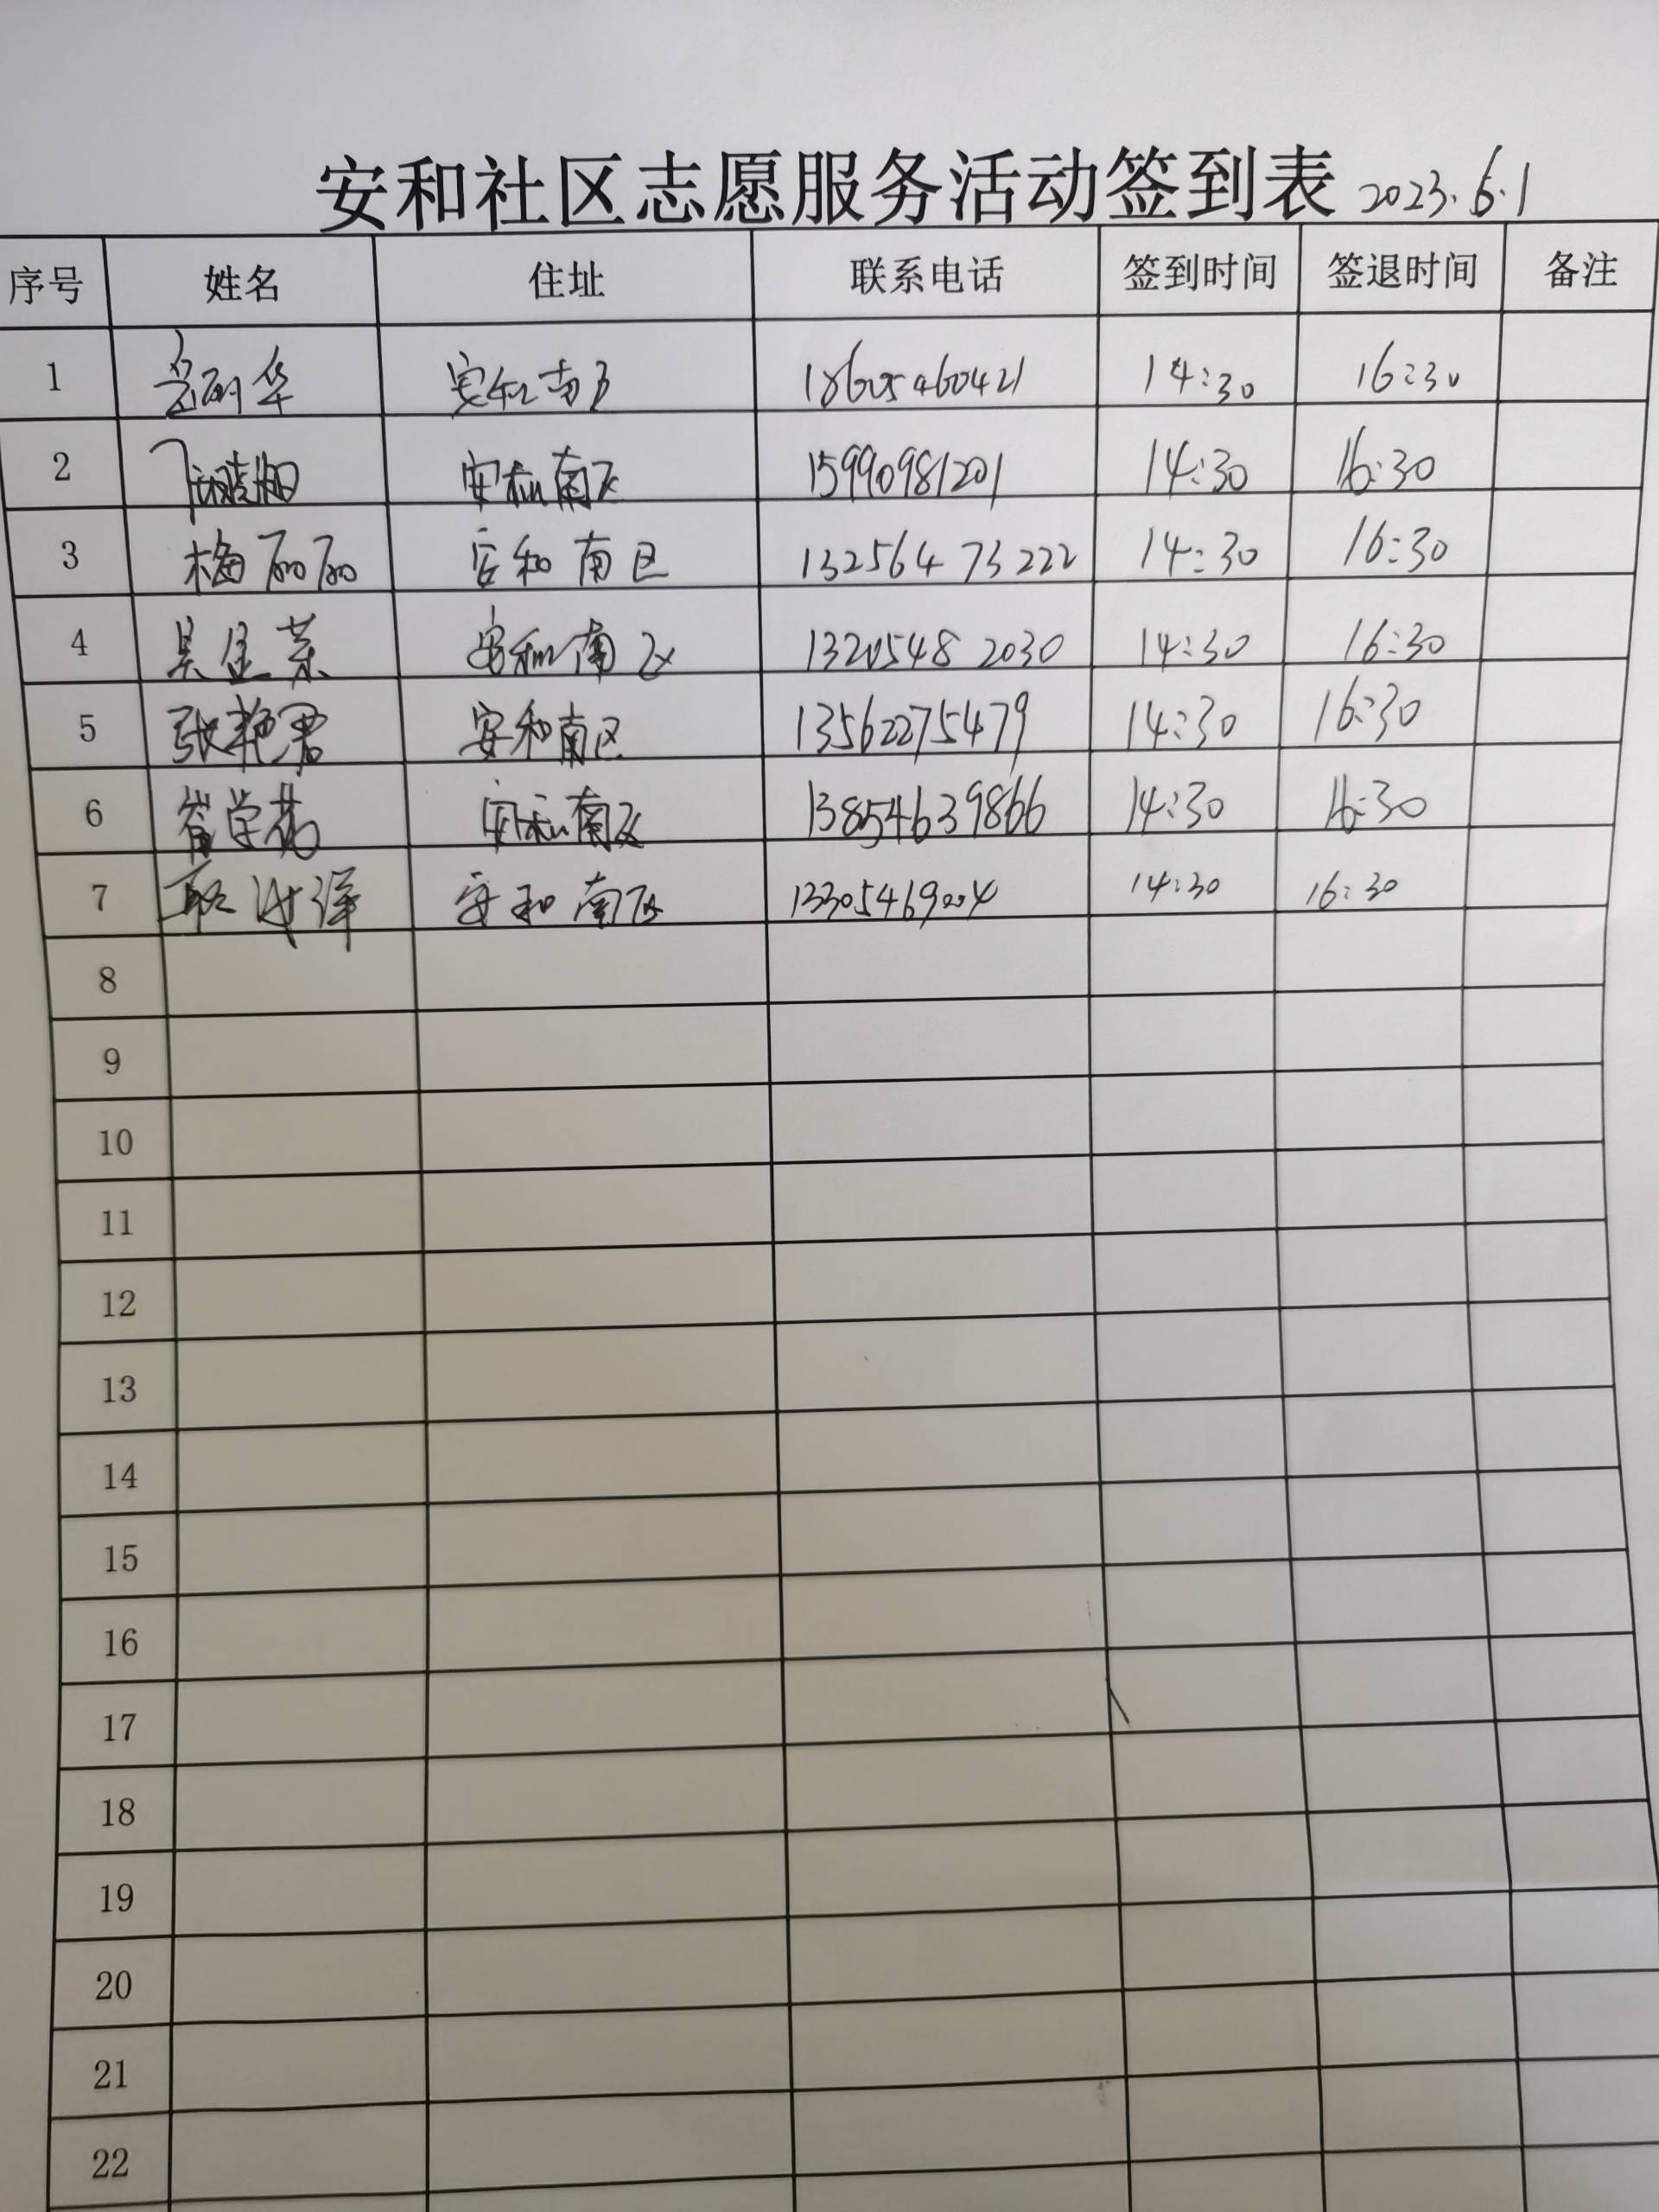 安和社区志愿服务活动签到表 2023.6.1
序号 姓名 住址 联系电话 签到时间 签退时间 备注
1 华 安和南区 18605460421 14:30 16:30
2 安和南区 15990981201 14:30 16:30
3 梅丽丽 安和南区 13256473222 14:30 16:30
4 吴金荣 安和南区 13205482030 14:30 16:30
5 张艳君 安和南区 13562275479 14:30 16:30
6 崔学花 安和南区 13854639866 14:30 16:30
7 安和南区 13305469004 14:30 16:30
8
9
10
11
12
13
14
15
16
17
18
19
20
21
22